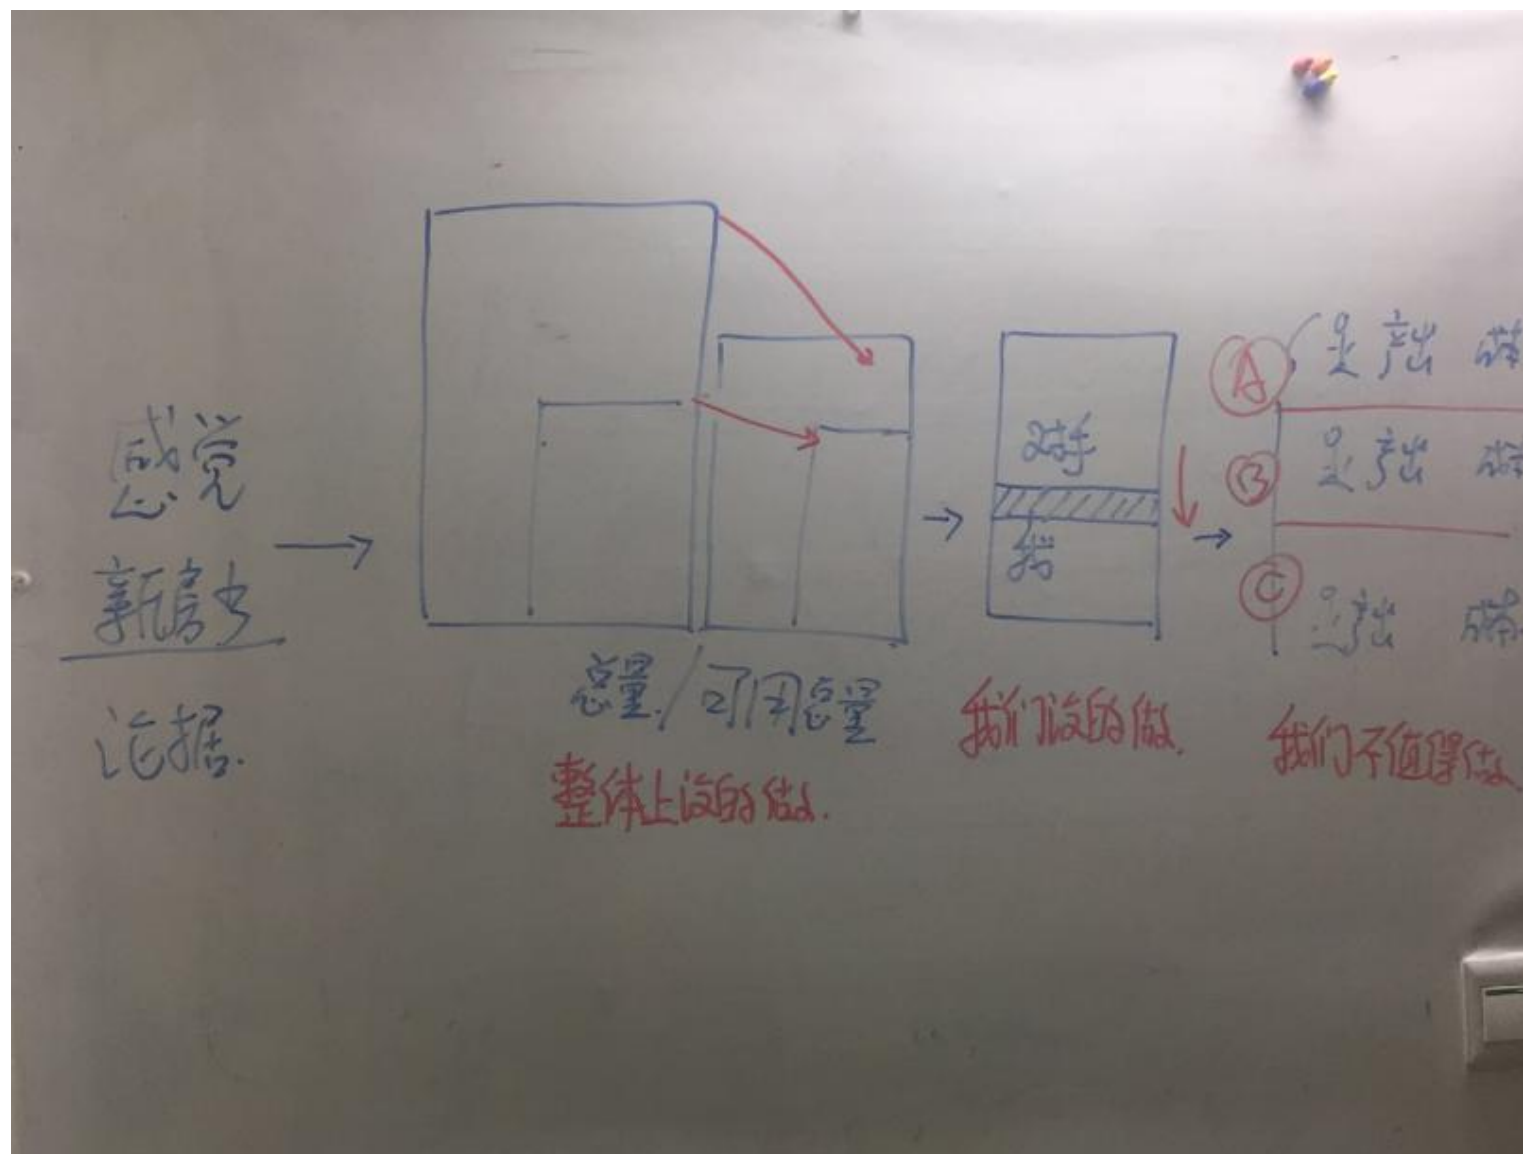 感觉
新房少
论据.
总量/可用总量
整体上没的做.
对手
我们没的做.
A
产出
B
产出
C
产出
我们不值得做